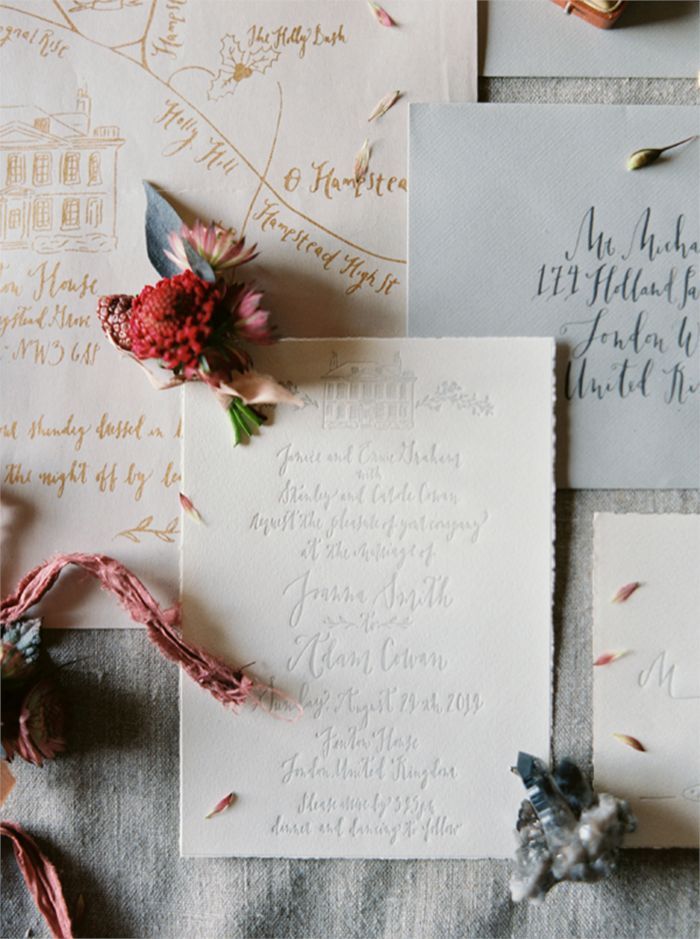 The Holly Bush
Holly Hill
Hampstead
Hampstead High St
House
Grove
NW3 6
shindig dressed in
the night off by
Mr Micha
174 Holland
London W
United Ki
Janice and Ernie Graham
with
Stanley and Carole Cowan
request the pleasure of your company
at the marriage of
Joanna Smith
to
Adam Cowan
Sunday, August
Fenton House
London, United Kingdom
Please arrive by
dinner and dancing to follow
M